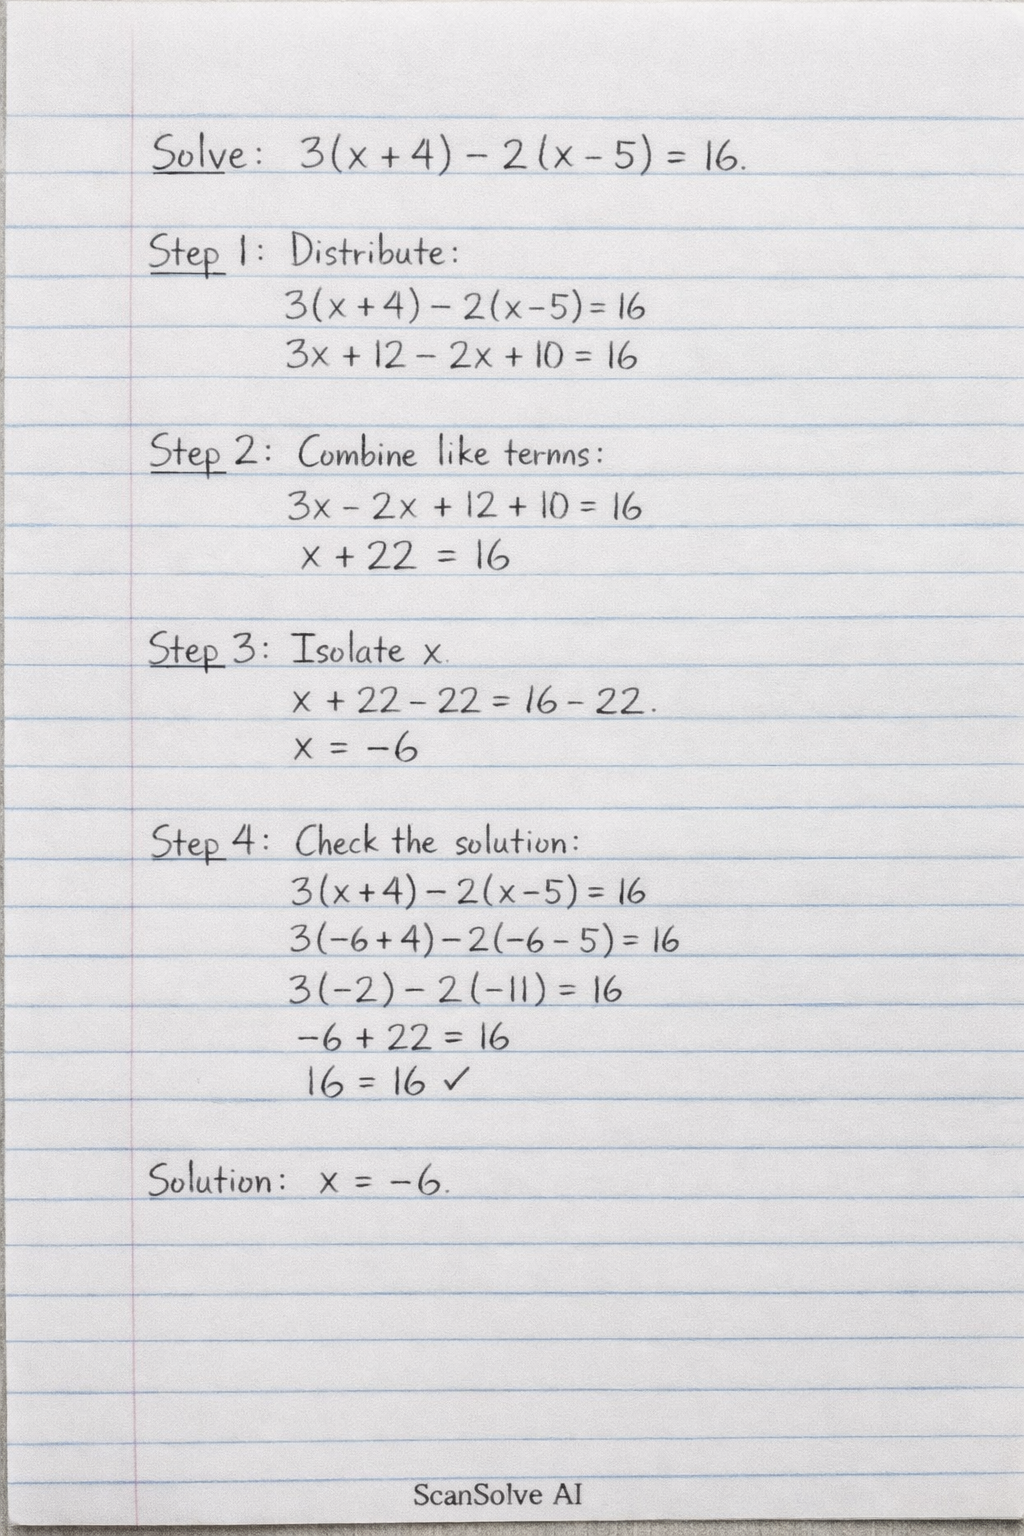 Solve: 3(x + 4) – 2(x – 5) = 16.
Step 1: Distribute:
3(x + 4) – 2(x – 5) = 16
3x + 12 – 2x + 10 = 16
Step 2: Combine like ternns:
3x – 2x + 12 + 10 = 16
x + 22 = 16
Step 3: Isolate x.
x + 22 – 22 = 16 – 22.
x = –6
Step 4: Check the solution:
3(x + 4) – 2(x – 5) = 16
3(–6 + 4) – 2(–6 – 5) = 16
3(–2) – 2(–11) = 16
–6 + 22 = 16
16 = 16 ✓
Solution: x = –6.
ScanSolve AI